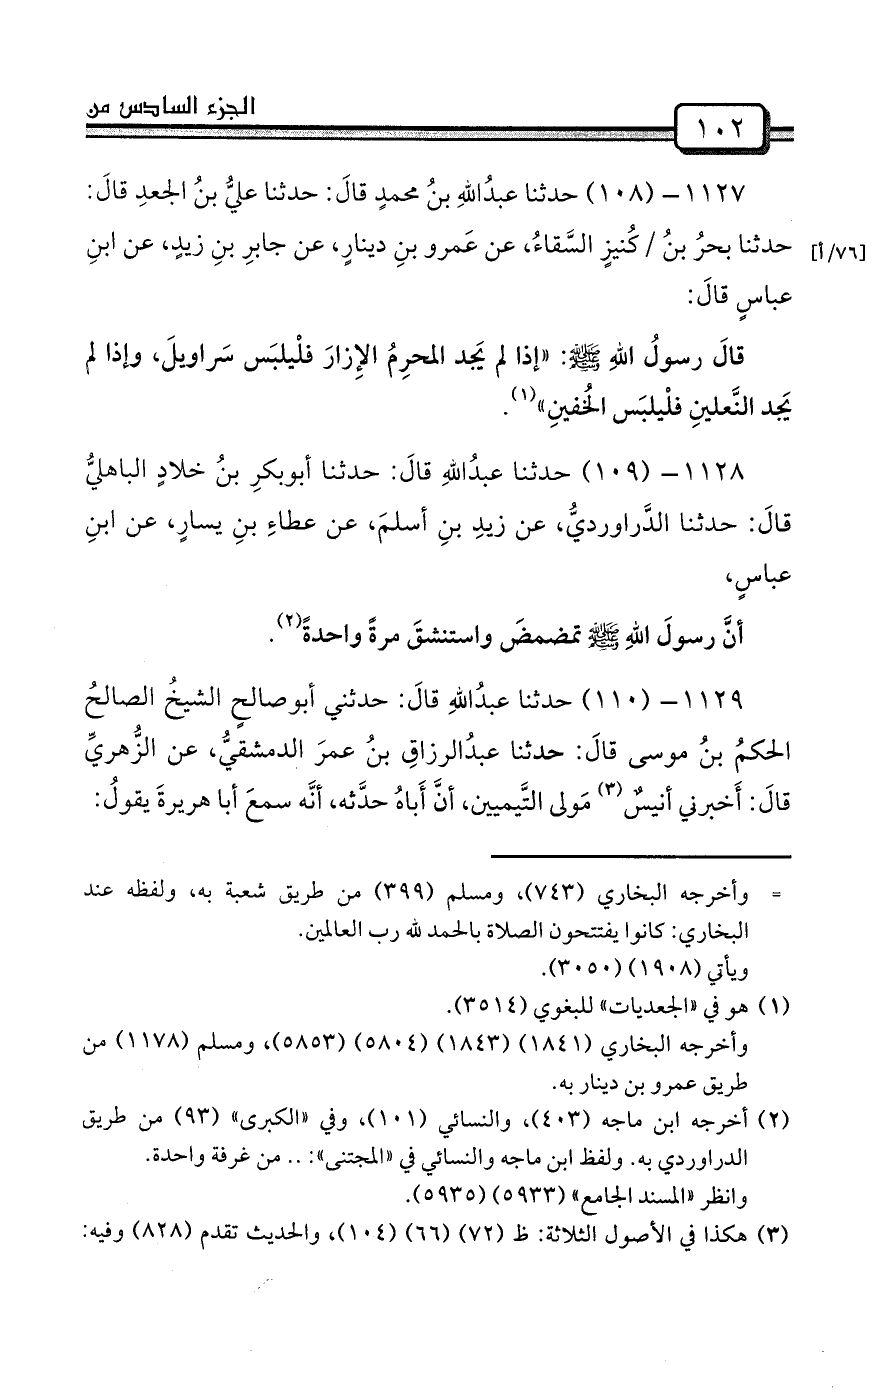 الجزء السادس من
١٠٢
١١٢٧- (١٠٨) حدثنا عبدُاللهِ بنُ محمدٍ قالَ: حدثنا عليُّ بنُ الجعدِ قالَ:
حدثنا بحرُ بنُ / كُنيزٍ السَّقاءُ، عن عَمرو بنِ دينارٍ، عن جابرِ بنِ زيدٍ، عن ابنِ [٧٦/أ]
عباسٍ قالَ:
قالَ رسولُ اللهِ ﷺ: «إذا لم يَجد المحرِمُ الإِزارَ فلْيلبَس سَراويلَ، وإذا لم
يَجد النَّعلينِ فلْيلبَس الخُفينِ»(١).
١١٢٨- (١٠٩) حدثنا عبدُاللهِ قالَ: حدثنا أبوبكرِ بنُ خلادٍ الباهليُّ
قالَ: حدثنا الدَّراورديُّ، عن زيدِ بنِ أسلمَ، عن عطاءِ بنِ يسارٍ، عن ابنِ
عباسٍ،
أنَّ رسولَ اللهِ ﷺ تمضمضَ واستنشقَ مرةً واحدةً(٢).
١١٢٩- (١١٠) حدثنا عبدُاللهِ قالَ: حدثني أبوصالحٍ الشيخُ الصالحُ
الحكمُ بنُ موسى قالَ: حدثنا عبدُالرزاقِ بنُ عمرَ الدمشقيُّ، عن الزُّهريِّ
قالَ: أَخبرني أنيسٌ(٣) مَولى التَّيميين، أنَّ أَباهُ حدَّثه، أنَّه سمعَ أبا هريرةَ يقولُ:
= وأخرجه البخاري (٧٤٣)، ومسلم (٣٩٩) من طريق شعبة به، ولفظه عند
البخاري: كانوا يفتتحون الصلاة بالحمد لله رب العالمين.
ويأتي (١٩٠٨) (٣٠٥٠).
(١) هو في «الجعديات» للبغوي (٣٥١٤).
وأخرجه البخاري (١٨٤١) (١٨٤٣) (٥٨٠٤) (٥٨٥٣)، ومسلم (١١٧٨) من
طريق عمرو بن دينار به.
(٢) أخرجه ابن ماجه (٤٠٣)، والنسائي (١٠١)، وفي «الكبرى» (٩٣) من طريق
الدراوردي به. ولفظ ابن ماجه والنسائي في «المجتنى»: .. من غرفة واحدة.
وانظر «المسند الجامع» (٥٩٣٣) (٥٩٣٥).
(٣) هكذا في الأصول الثلاثة: ظ (٧٢) (٦٦) (١٠٤)، والحديث تقدم (٨٢٨) وفيه: